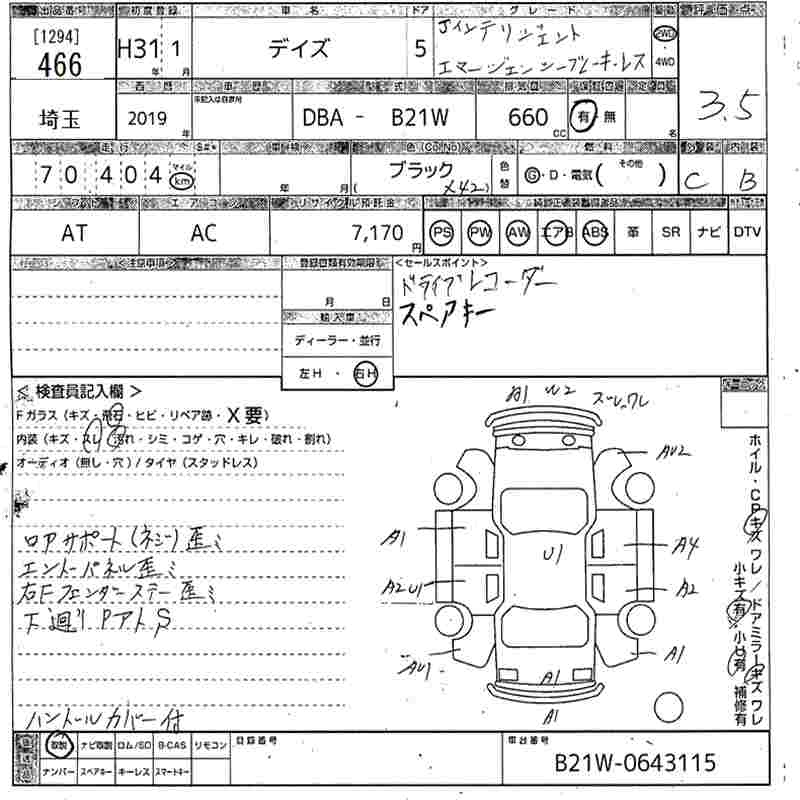 出品番号 初度登録 車名 ドア グレード 駆動 評価点
[1294]
466
H31年 1月
デイズ
5
Jインテリジェント
エマージェンシーブレーキ・レス
2WD・4WD
3.5
西暦 車歴 型式 排気量
埼玉
2019年
未記入は自家用
DBA - B21W
660 CC
有・無
名
走行 車検 色(C○No) 燃料 外装 内装
70404
マイル
km
年 月
ブラック
( X42 )
色替
G・D・電気( その他 )
C
B
シフト エアコン リサイクル預託金
AT
AC
7,170円
PS PW AW エアB ABS 革 SR ナビ DTV
<注意事項>
登録書類有効期限
月 日
輸入車
ディーラー・並行
左H・右H
<セールスポイント>
ドライブレコーダー
スペアキー
<検査員記入欄>
Fガラス(キズ・飛石・ヒビ・リペア跡・X要)
内装(キズ・スレ・汚れ・シミ・コゲ・穴・キレ・破れ・割れ)
オーディオ(無し・穴)/タイヤ(スタッドレス)
ロアサポート(ネジ)歪ミ
エンドパネル歪ミ
右Fフェンダーステー歪ミ
下廻りPアトS
ハンドルカバー付
A1 W2 ズレ、ワレ
AU2
A1
U1
A4
A2U1
A2
AU1
A1
A1
A1
ホイル・CPキズワレ/ドアミラーキズワレ
小キズ有 小凹有 補修有
取説 ナビ取説 ロム/SD B-CAS リモコン
ナンバー スペアキー キーレス スマートキー
登録番号
車台番号
B21W-0643115